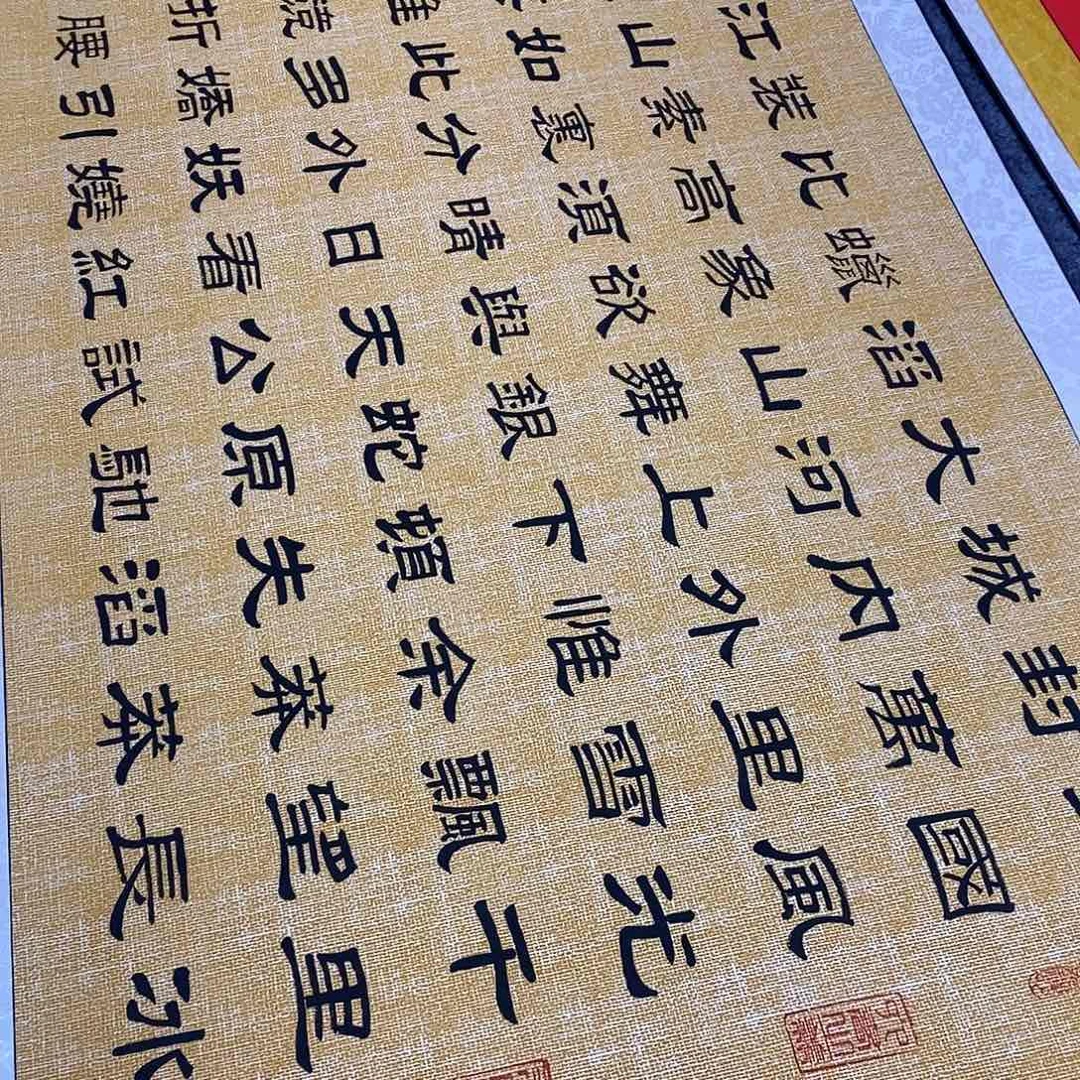 國風光千里冰
封萬里雪飄望長
城内外惟余莽莽
大河上下頓失滔
滔山舞銀蛇原馳
蠟象欲與天公試
比高須晴日看紅
裝素裹分外妖嬈
江山如此多嬌引
競折腰